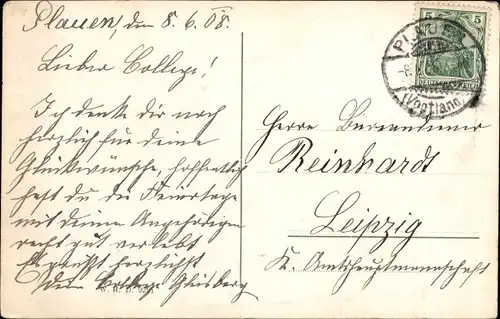 Plauen, den 8. 6. 08.
Lieber College!
Ich danke dir noch
herzlich für deine
Glückwünsche, hoffentlich
hast du die Feiertage
mit deinen Angehörigen
recht gut verlebt
Es grüßt herzlichst
dein College Gleisberg
5 5
PLAUEN
(Vogtland)
DEUTSCHES REICH
Herrn Bureaudiener
Reinhardt
Leipzig
K. Amtshauptmannschaft